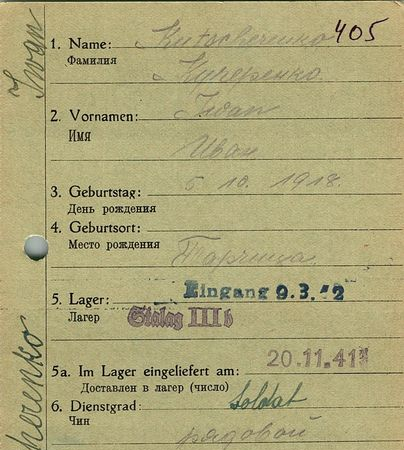 405
1. Name: Kutscherenko
Фамилия
Кучеренко
2. Vornamen: Iwan
Имя
Иван
3. Geburtstag: 5 10. 1918.
День рождения
4. Geburtsort:
Место рождения
Eingang 9.3.42
5. Lager: Stalag IIIb
Лагерь
5a. Im Lager eingeliefert am: 20.11.41
Доставлен в лагерь (число)
6. Dienstgrad: Soldat
Чин
рядовой
Iwan
herenko